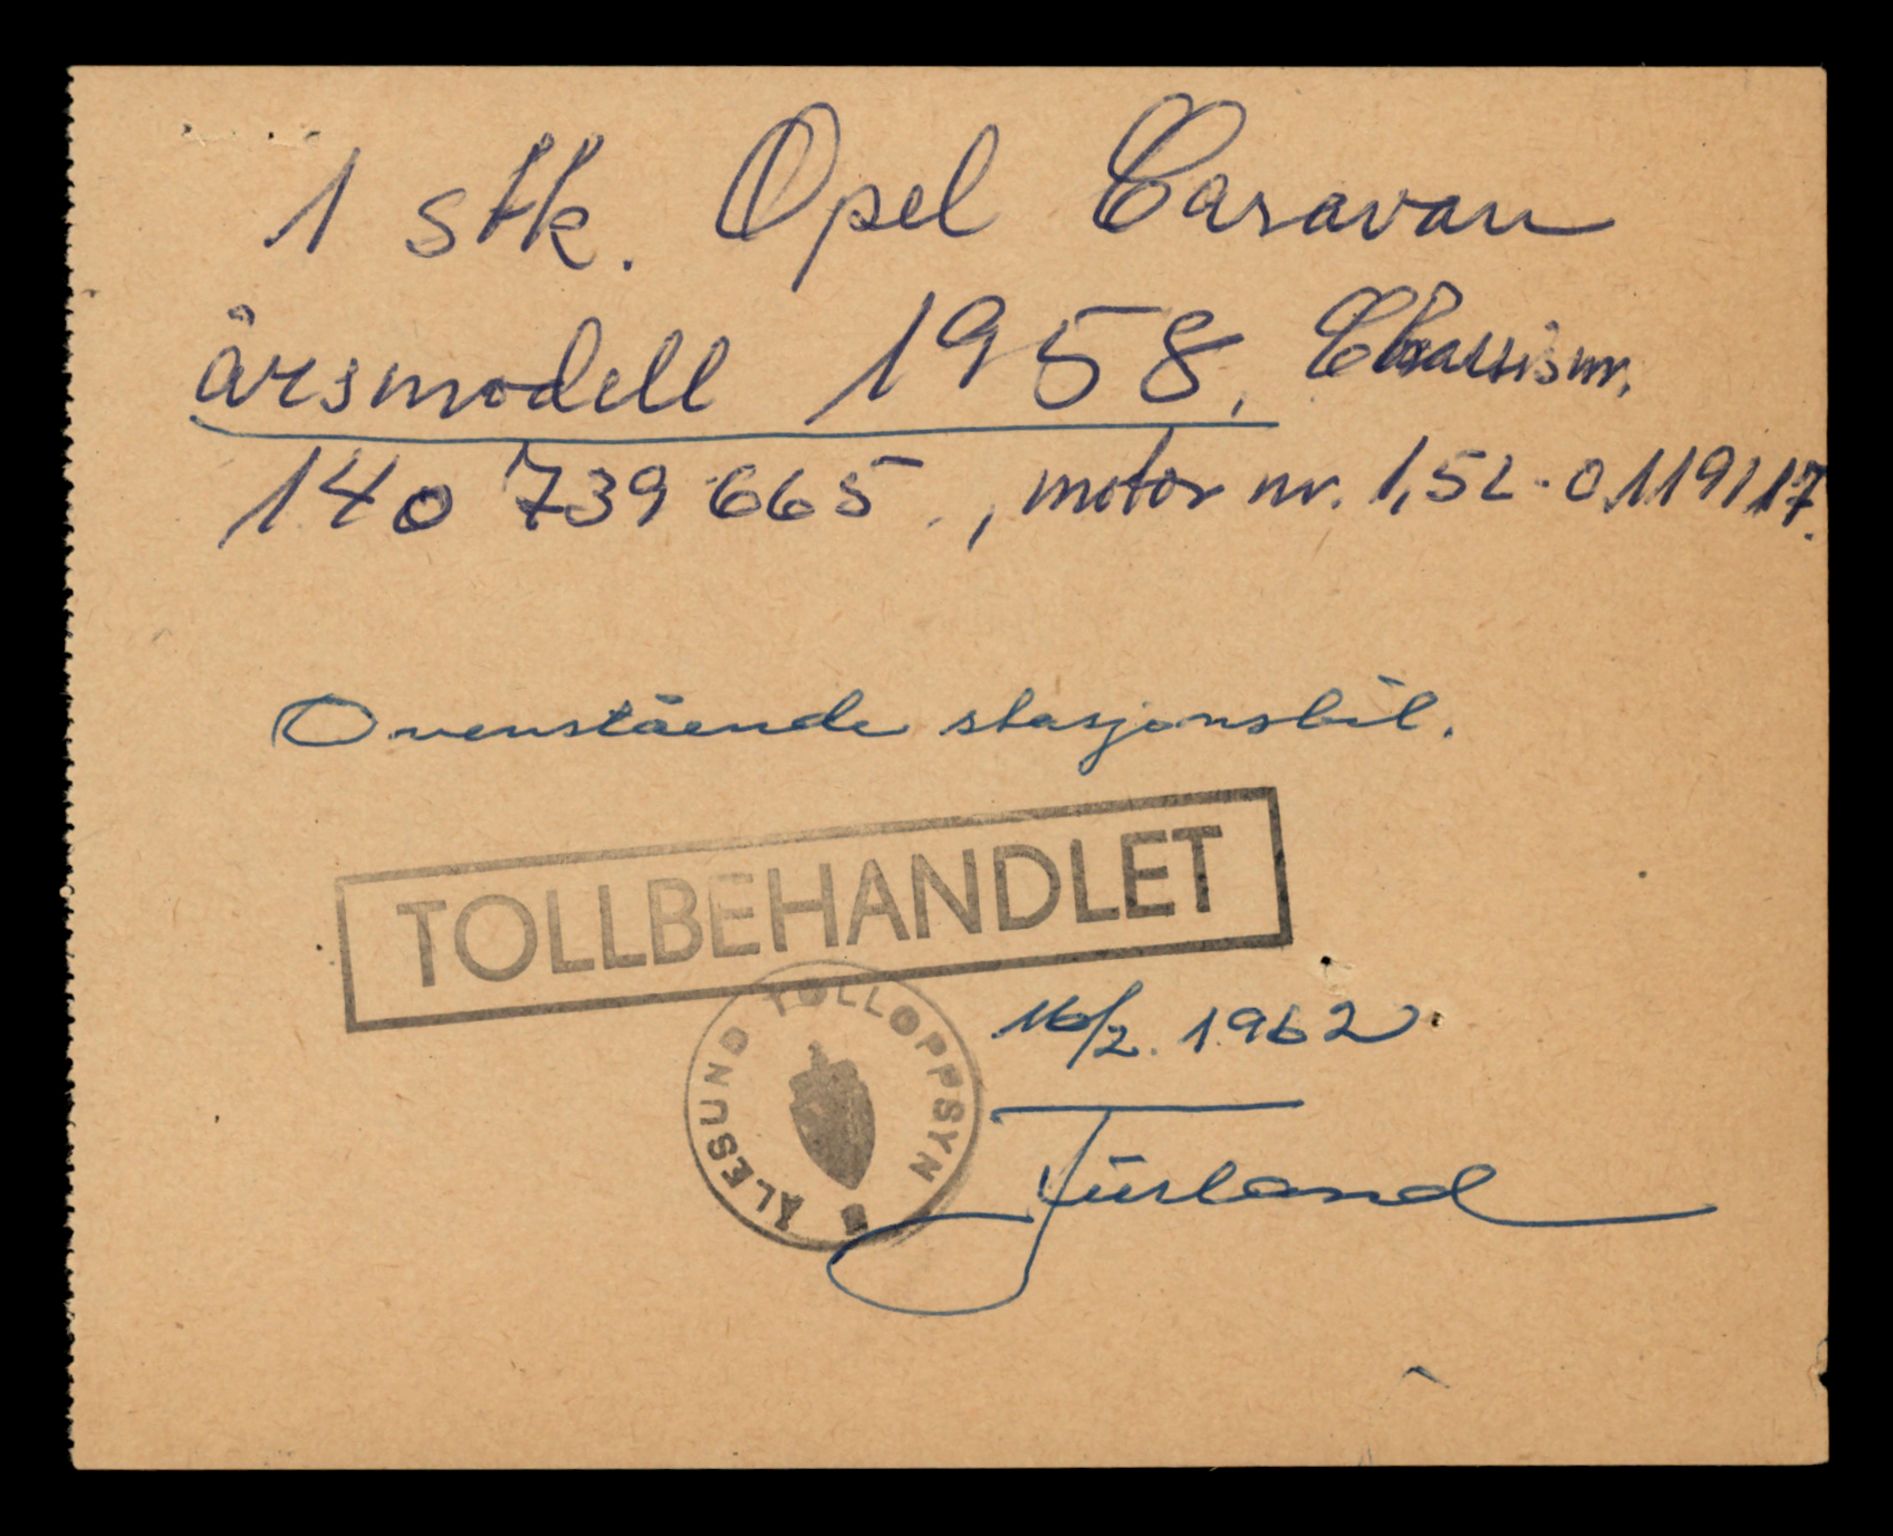 1 stk. Opel Caravan
årsmodell 1958, Chassisnr.
140 739 665, motor nr. 1,5L-0119117.
Ovenstående stasjonsbil.
TOLLBEHANDLET
ÅLESUND TOLLOPPSYN
16/2. 1962